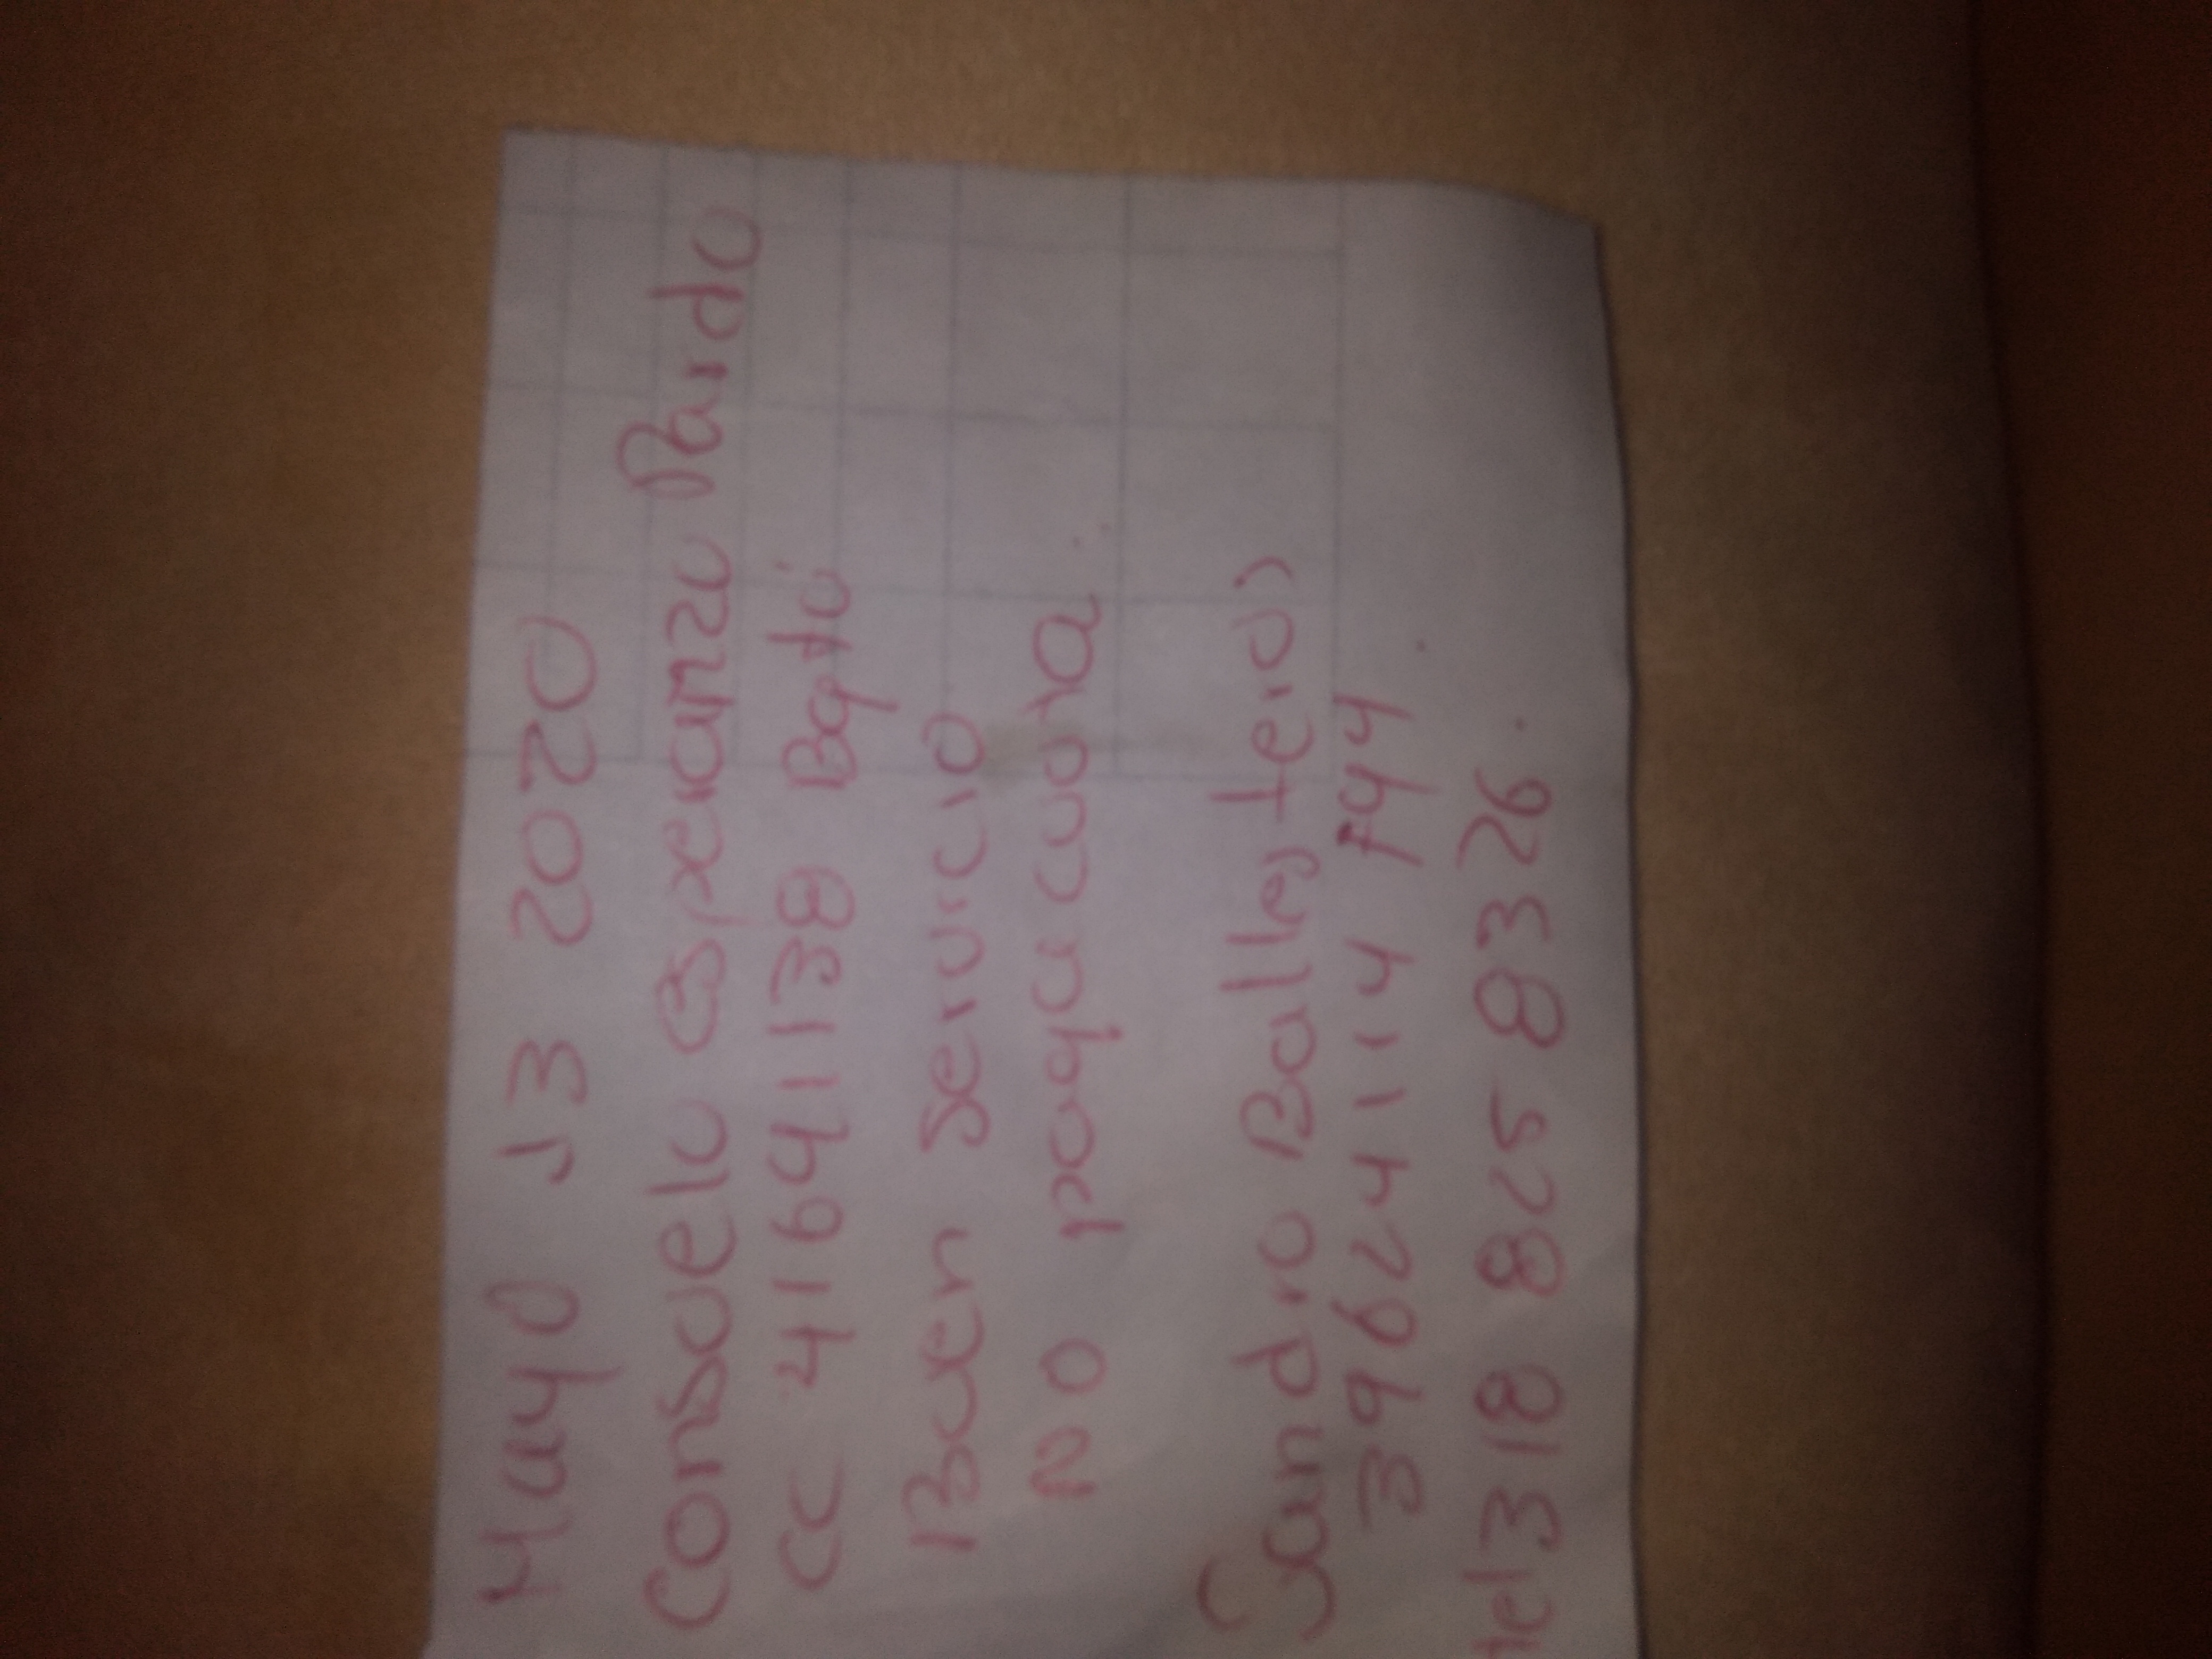 Mayo 13 2020
Consuelo esperanza Pardo
CC 41641138 Bgtá
Buen servicio
No paga cuota
Sandra Ballesteros
39624114 F44
tel 318 825 8326.